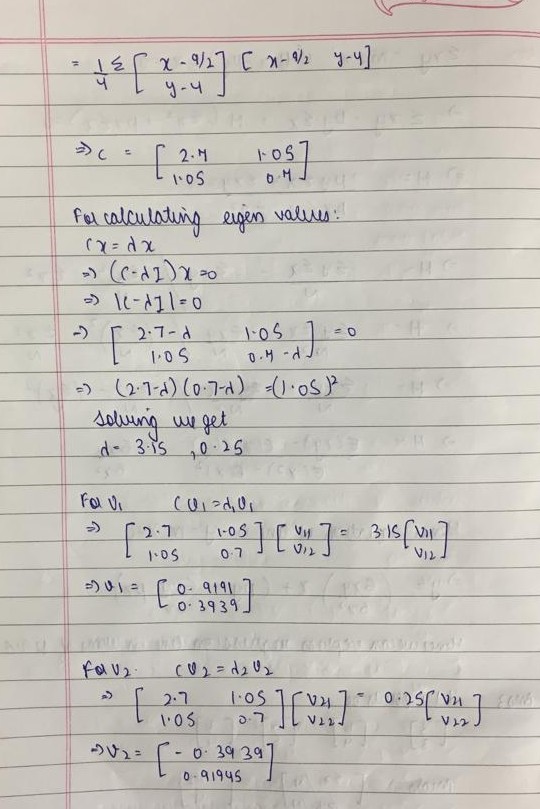 = 1/4 Σ [ x - 9/2 ] [ x - 9/2 y-4 ]
y-4
⇒ C = [ 2.7 1.05 ]
1.05 0.7
For calculating eigen values:
Cx = λx
⇒ (C-λI)x=0
⇒ |C-λI|=0
⇒ [ 2.7-λ 1.05 ] = 0
1.05 0.7-λ
⇒ (2.7-λ)(0.7-λ) = (1.05)²
Solving we get
λ = 3.15 , 0.25
For V₁ CV₁=λ₁V₁
⇒ [ 2.7 1.05 ] [ V₁₁ ] = 3.15 [ V₁₁ ]
1.05 0.7 V₁₂ V₁₂
⇒ V₁ = [ 0.9191 ]
0.3939
For V₂. CV₂ = λ₂V₂
⇒ [ 2.7 1.05 ] [ V₂₁ ] = 0.25 [ V₂₁ ]
1.05 0.7 V₂₂ V₂₂
⇒ V₂ = [ - 0.3939 ]
0.91945